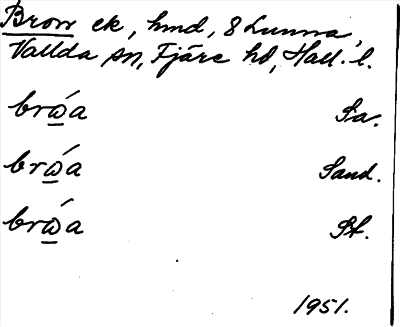 Brow ek, hmd, 8 Lunna,
Vallda sn, Fjäre hd, Hall. l.
brώ̲a Sa.
brώ̲a Sand.
brώ̲a St.
1951.